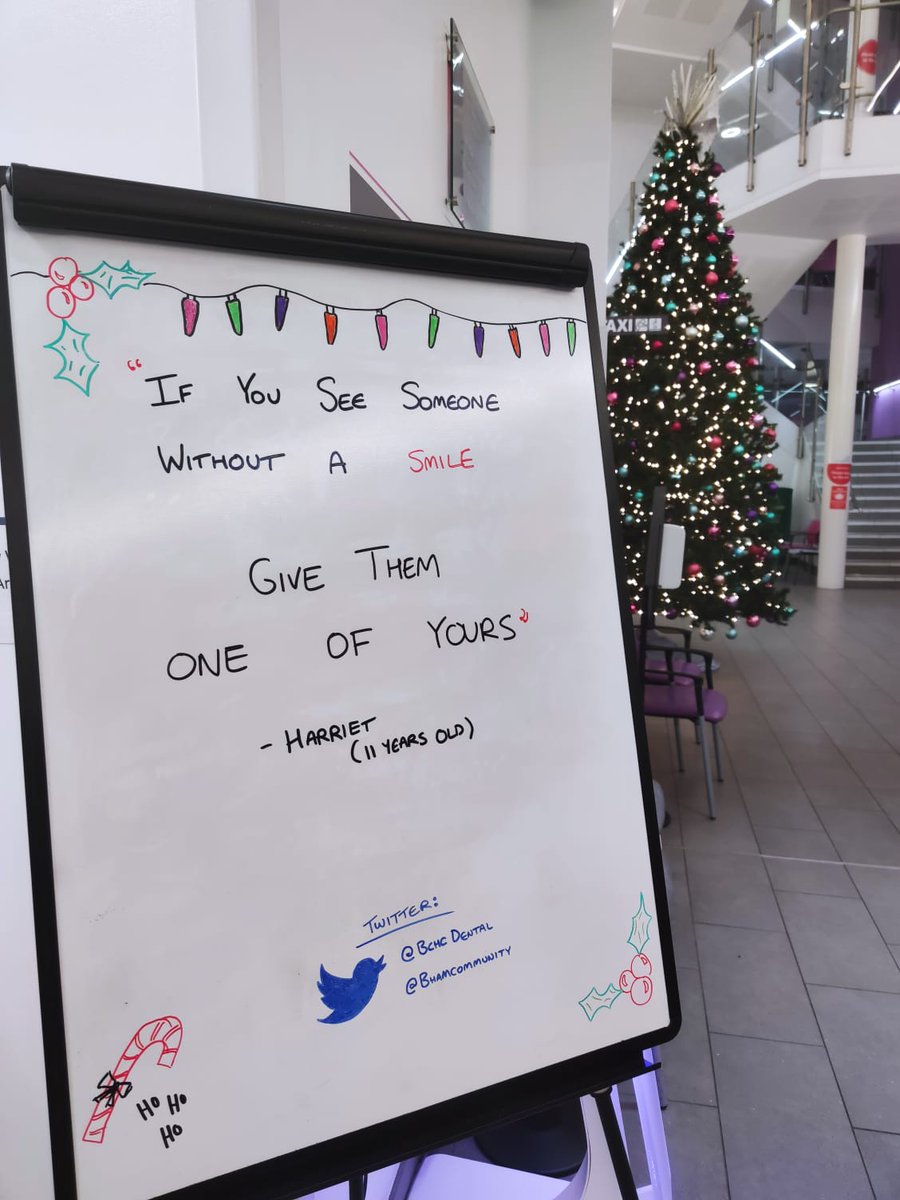 “If You See Someone
Without A Smile
Give Them
One Of Yours”
- Harriet
(11 years old)
Twitter:
@BCHCDental
@Bhamcommunity
Ho Ho
Ho
TAXI